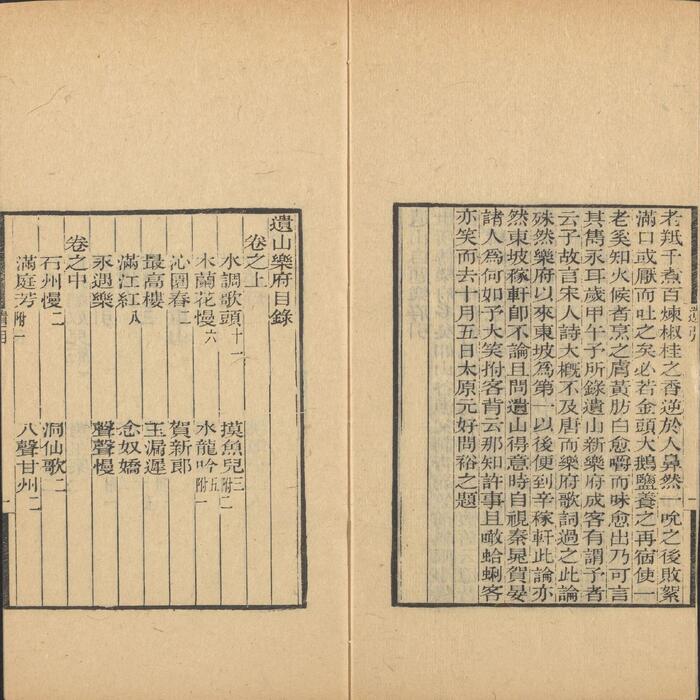 老羝千煮百煉椒桂之香逆於人鼻然一吮之後敗絮
滿口或厭而吐之矣必若金頭大鵝鹽養之再宿使一
老奚知火候者烹之膚黃肪白愈嚼而味愈出乃可言
其雋永耳歲甲午予所錄遺山新樂府成客有謂予者
云子故言宋人詩大概不及唐而樂府歌詞過之此論
殊然樂府以來東坡為第一以後便到辛稼軒此論亦
然東坡稼軒卽不論且問遺山得意時自視秦晁賀晏
諸人為何如予大笑拊客背云那知許事且噉蛤蜊客
亦笑而去十月五日太原元好問裕之題
遺引
一
遺山樂府目錄
卷之上
水調歌頭十一 摸魚兒三附二
木蘭花慢六 水龍吟五附一
沁園春二 賀新郎
最高樓 玉漏遲
滿江紅八 念奴嬌
永遇樂 聲聲慢
卷之中
石州慢二 洞仙歌二
滿庭芳附一 八聲甘州二
遺目
一